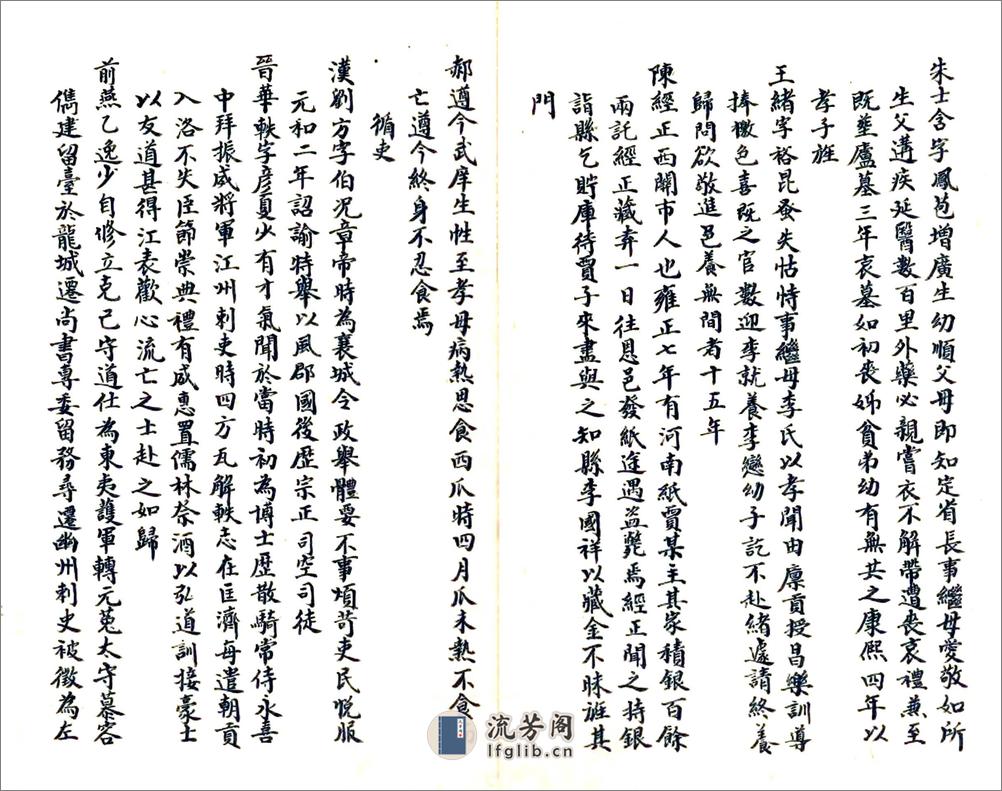 朱士含字鳳苞增廣生幼順父母即知定省長事繼母愛敬如所
生父遘疾延醫數百里外藥必親嘗衣不解帶遭喪哀禮兼至
既塟廬墓三年哀墓如初喪姊貧弟幼有無共之康熙四年以
孝子旌
王緒字裕昆蚤失怙恃事繼母李氏以孝聞由廩貢授昌樂訓導
捧檄色喜既之官數迎李就養李戀幼子訖不赴緒遽請終養
歸問欲敬進色養無間者十五年
陳經正西關市人也雍正七年有河南紙賈某主其家積銀百餘
兩託經正藏弆一日往恩邑發紙途遇盜斃焉經正聞之持銀
詣縣乞貯庫待賈子來盡與之知縣李國祥以藏金不昧旌其
門
郝遵今武庠生性至孝母病熱思食西瓜時四月瓜未熟不食
亡遵今終身不忍食焉
循吏
漢劉方字伯況章帝時為襄城令政舉體要不事煩苛吏民悅服
元和二年詔諭特舉以風郡國後歷宗正司空司徒
晉華軼字彥夏少有才氣聞於當時初為博士歷散騎常侍永嘉
中拜振威將軍江州刺史時四方瓦解軼志在匡濟每遣朝貢
入洛不失臣節崇典禮有威惠置儒林祭酒以弘道訓接豪士
以友道甚得江表歡心流亡之士赴之如歸
前燕乙逸少自修立克己守道仕為東夷護軍轉元菟太守慕容
儁建留臺於龍城遷尚書專委留務尋遷幽州刺史被徵為左
流芳阁
lfglib.cn